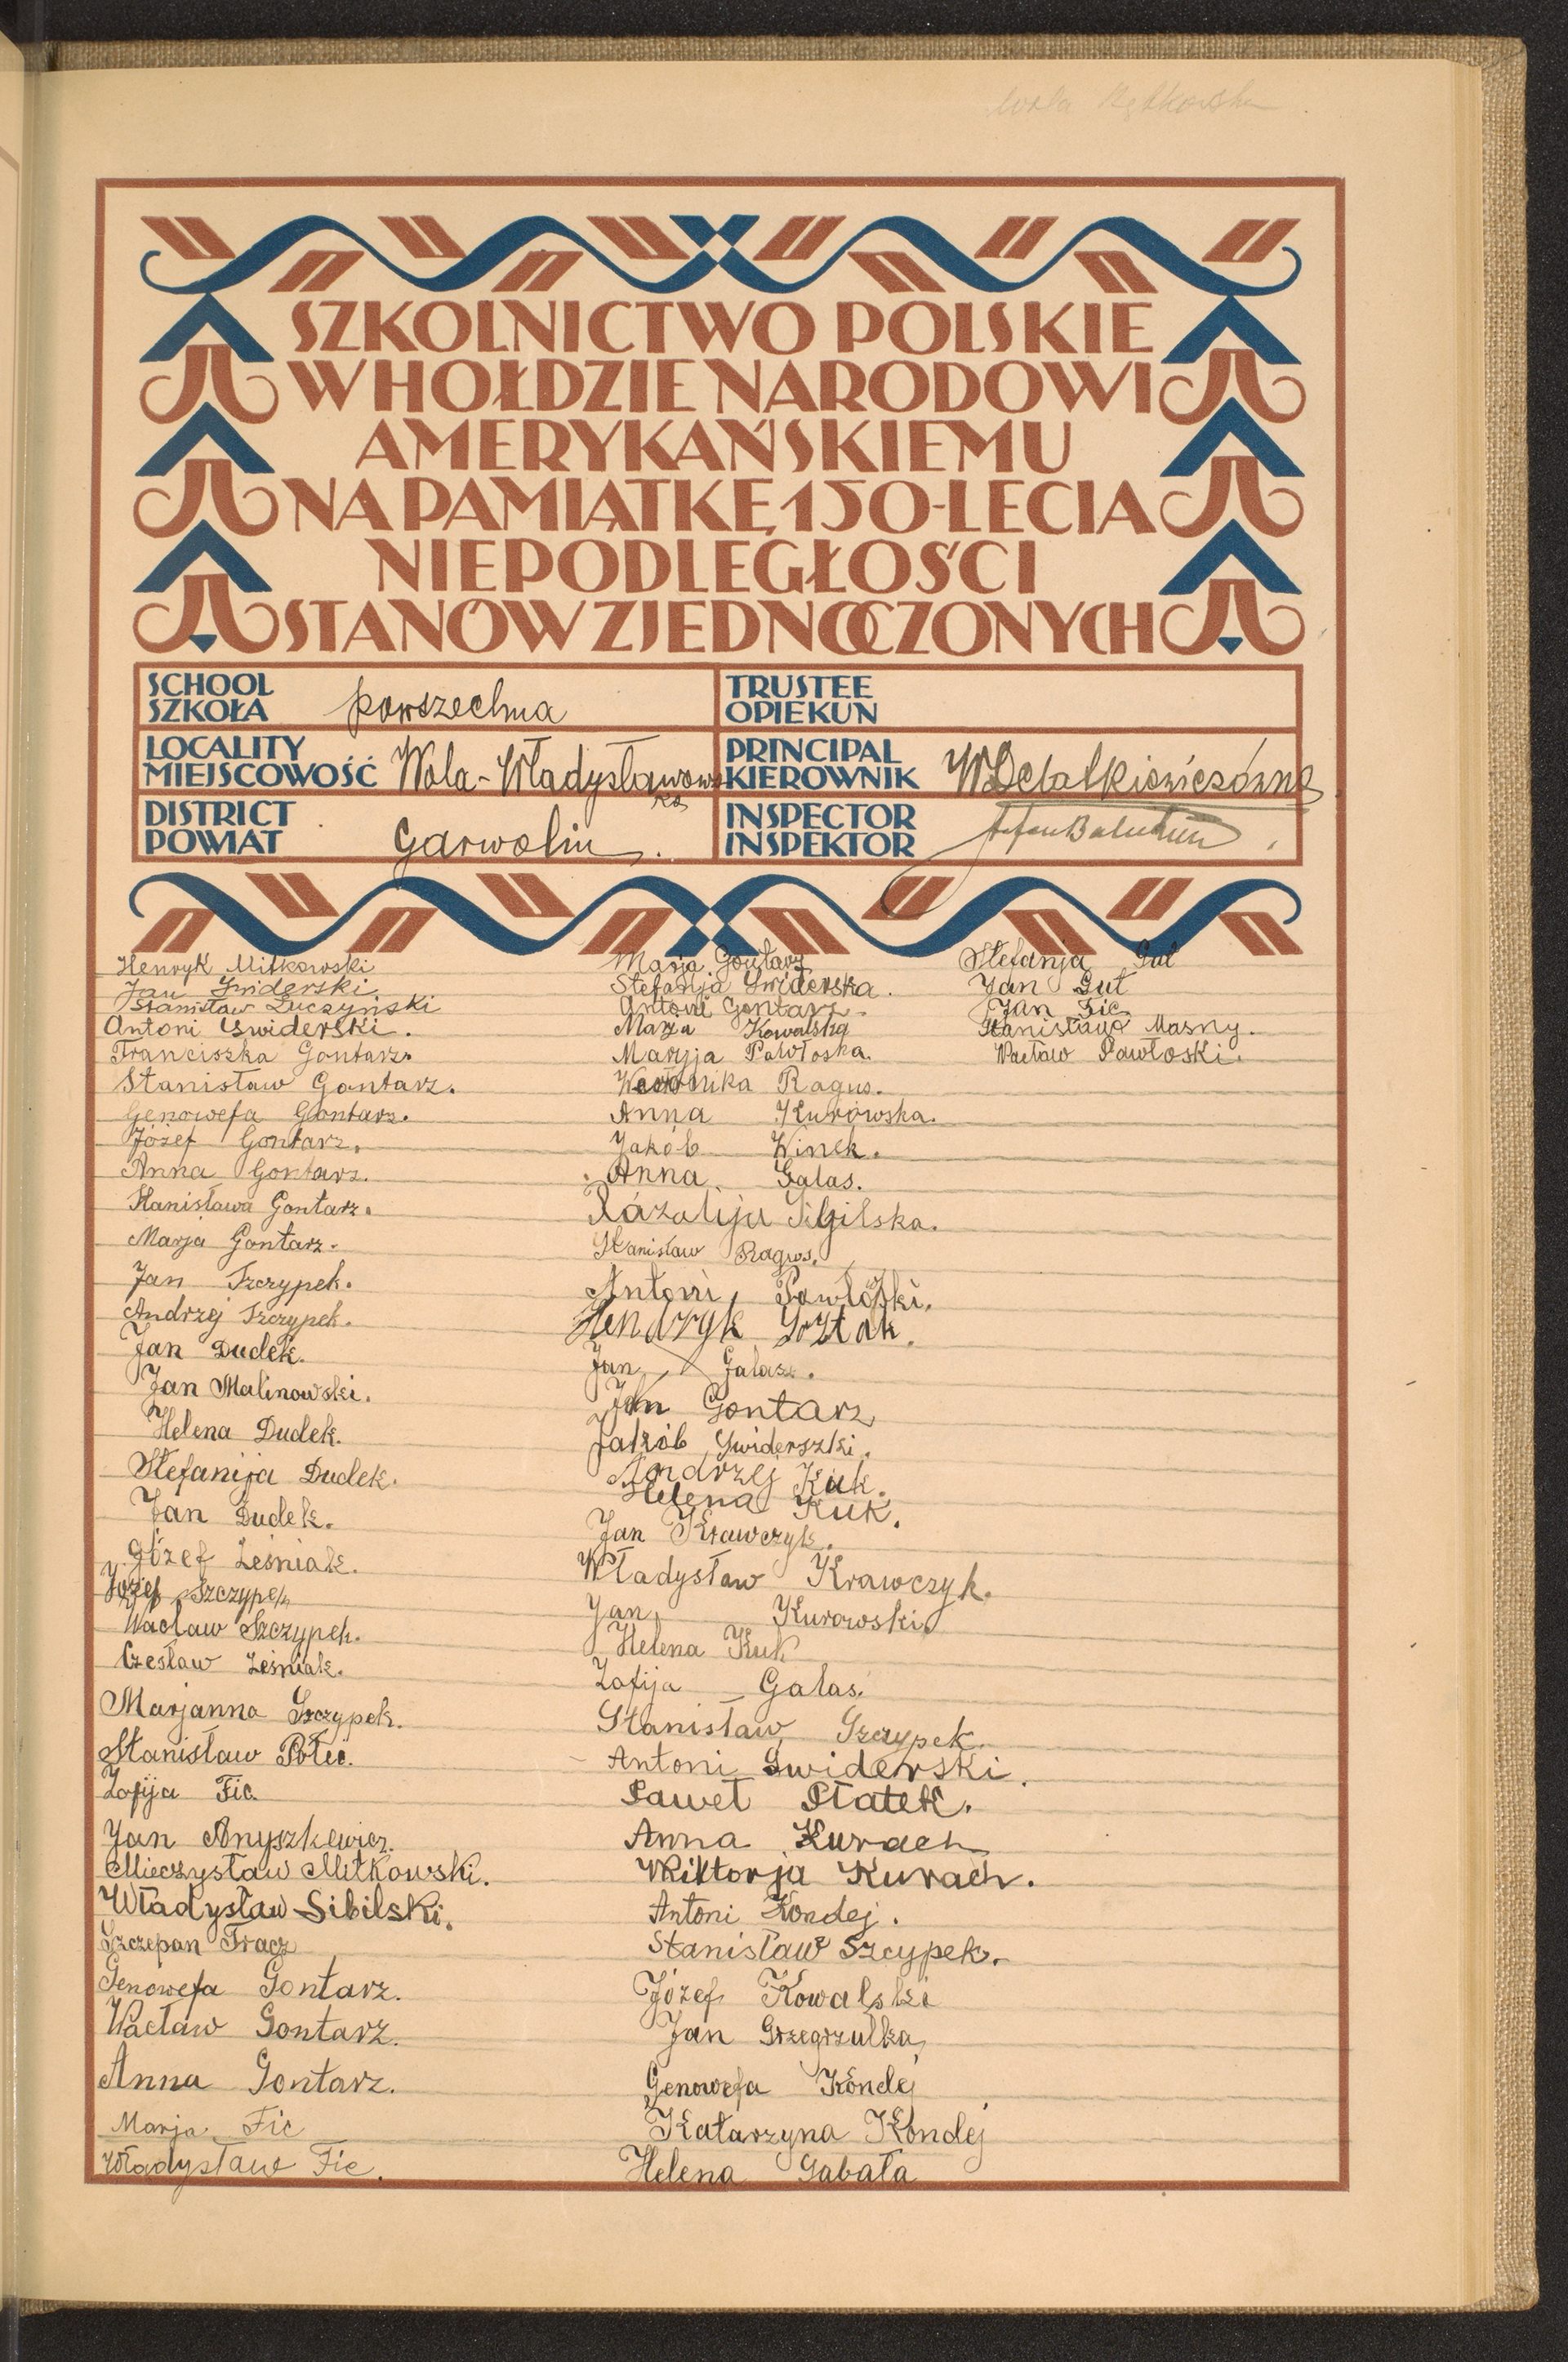 Wola Rębkowska
SZKOLNICTWO POLSKIE
W HOŁDZIE NARODOWI
AMERYKAŃSKIEMU
NA PAMIĄTKĘ 150-LECIA
NIEPODLEGŁOŚCI
STANÓW ZJEDNOCZONYCH
SCHOOL
SZKOŁA
powszechna
TRUSTEE
OPIEKUN
LOCALITY
MIEJSCOWOŚĆ
Wola-Władysławows
ka
PRINCIPAL
KIEROWNIK
DISTRICT
POWIAT
Garwolin.
INSPECTOR
INSPEKTOR
Henryk Mitkowski
Jan Swiderski
Stanisław Łuczyński
Antoni Swiderski.
Franciszka Gontarz.
Stanisław Gontarz.
Genowefa Gontarz.
Józef Gontarz.
Anna Gontarz.
Stanisława Gontarz.
Marja Gontarz.
Jan Szczypek.
Andrzej Szczypek.
Jan Dudek.
Jan Malinowski.
Helena Dudek.
Stefanija Dudek.
Jan Dudek.
Józef Leśniak.
Józef Szczypek
Wacław Szczypek.
Czesław Leśniak.
Marjanna Szczypek.
Stanisław Połeć.
Zofija Fic.
Jan Anyszkewicz.
Mieczysław Mitkowski.
Władysław Sibilski.
Szczepan Tracz
Genowefa Gontarz.
Wacław Gontarz.
Anna Gontarz.
Marja Fic
Władysław Fic.
Marja Gontarz
Stefanja Swiderska.
Antoni Gontarz.
Marja Kowalska
Maryja Pawłoska.
Weronika Ragus.
Anna Kurowska.
Jakób Winek.
Anna Galas.
Rázalija
Stanisław Ragus.
Antoni Pawłoski.
Hendzyk
Jan Galas.
Jan Gontarz
Jakób Swiderszki.
Andrzej Kuk.
Helena Kuk.
Jan Krawczyk.
Władysław Krawczyk.
Jan Kurowski
Helena Kuk
Zofija Galas.
Stanisław Szczypek.
Antoni Swiderski.
Paweł Płatek.
Anna Kurach
Wiktorja Kurach.
Antoni Kondej.
Stanisław Szcypek.
Józef Kowalski
Jan Grzegrzulka
Genowefa Kondej
Katarzyna Kondej
Helena Gabała
Stefanja Gut
Jan Gut
Jan Fic
Stanisława Masny.
Wacław Pawłoski.